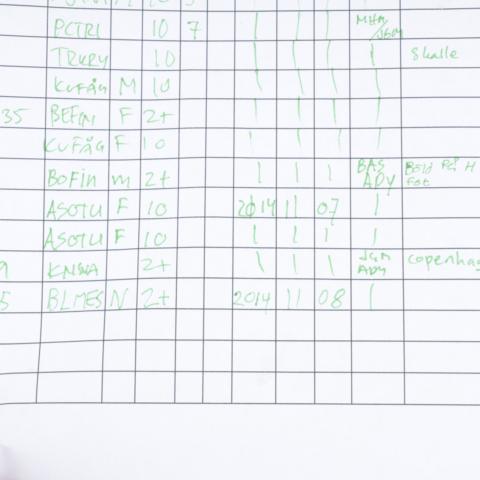 PCTRI 10 7 | | | MHM/JGM
TRKRY 10 | | | | Skalle
KUFÅG M 10 | | | |
35 BEFIN F 2+ | | | |
KUFÅG F 10 | | |
BOFIN M 2+ | | | BAS ADY på H
ASOTU F 10 2014 11 07 |
ASOTU F 10 | | | |
9 KNSNA 2+ | | | JGM ADY Copenhag
5 BLMES N 2+ 2014 11 08 |